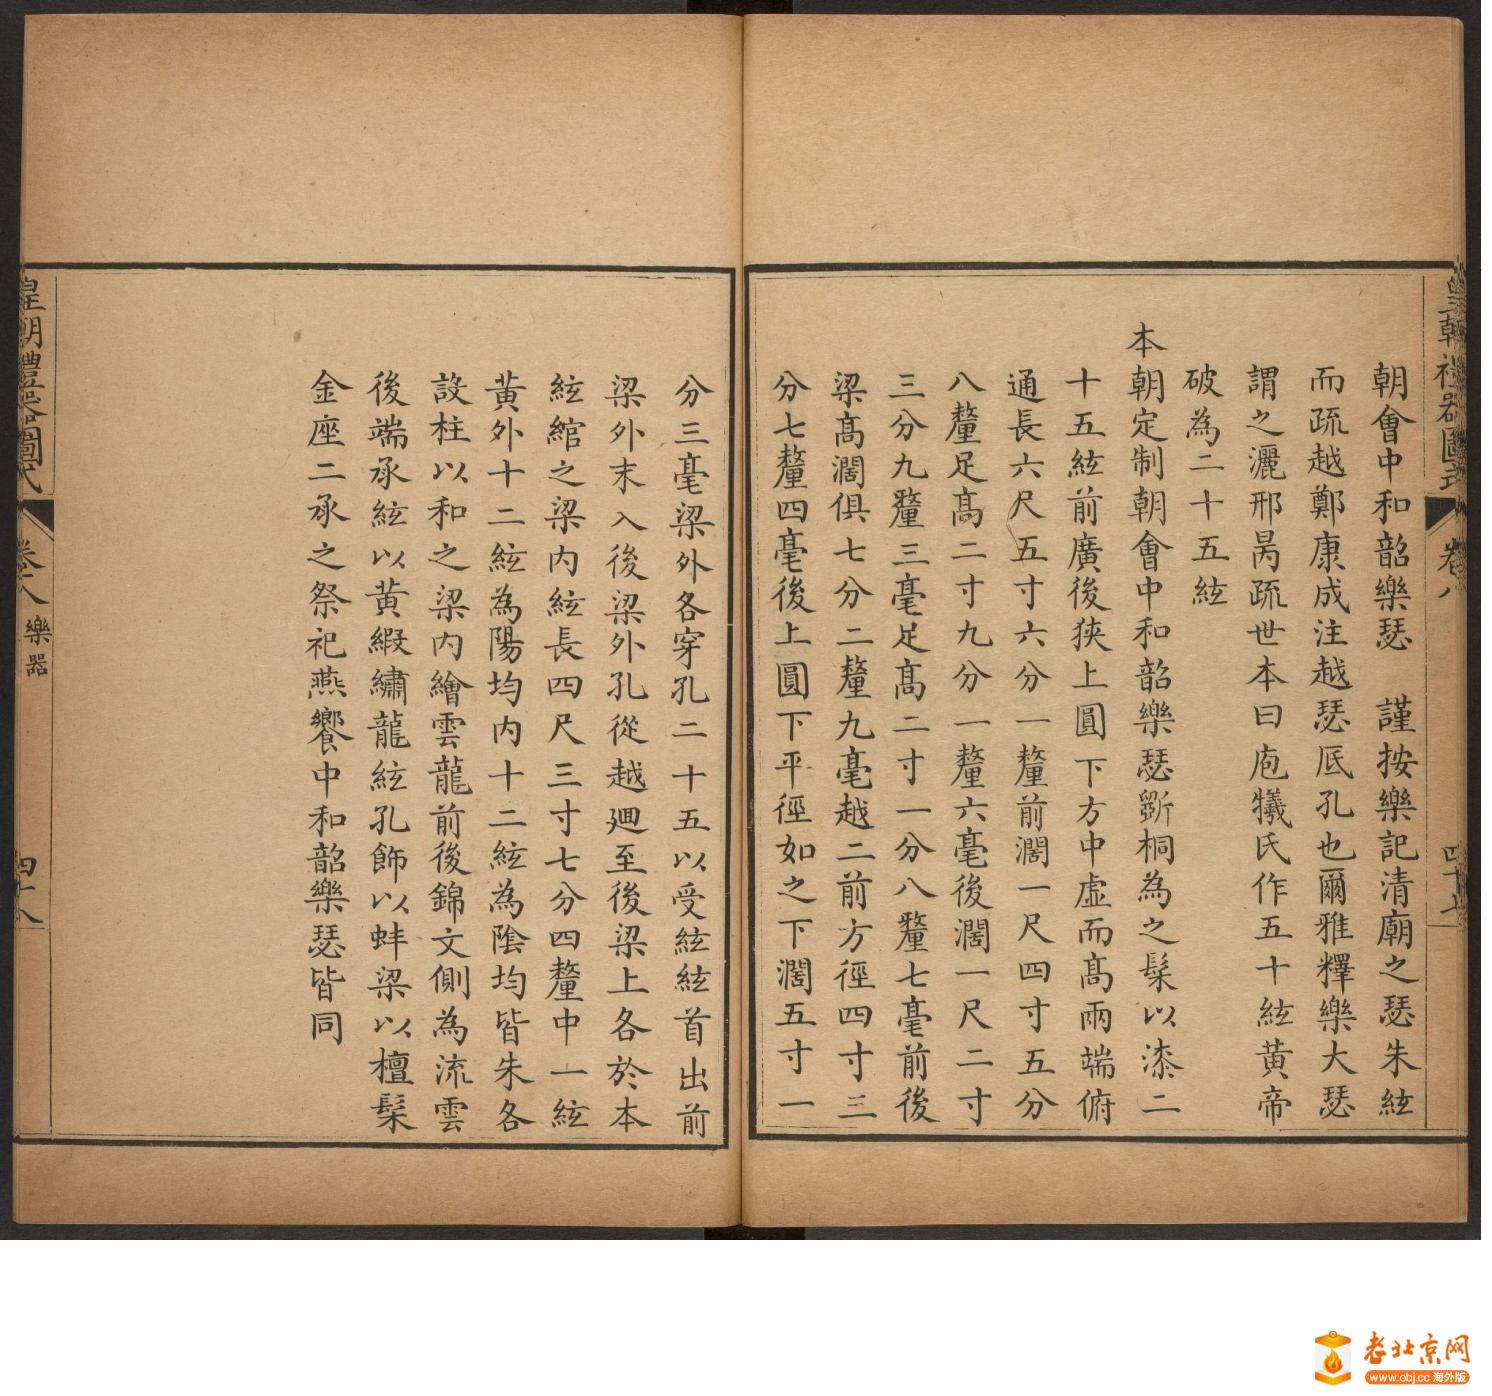 皇朝禮器圖式 卷八 四十七
朝會中和韶樂瑟 謹按樂記清廟之瑟朱絃
而疏越鄭康成注越瑟底孔也爾雅釋樂大瑟
謂之灑邢昺疏世本曰庖犧氏作五十絃黃帝
破為二十五絃
本朝定制朝會中和韶樂瑟斵桐為之髹以漆二
十五絃前廣後狹上圓下方中虛而髙兩端俯
通長六尺五寸六分一釐前濶一尺四寸五分
八釐足髙二寸九分一釐六毫後濶一尺二寸
三分九釐三毫足髙二寸一分八釐七毫前後
梁髙濶俱七分二釐九毫越二前方徑四寸三
分七釐四毫後上圓下平徑如之下濶五寸一
分三毫梁外各穿孔二十五以受絃絃首出前
梁外末入後梁外孔從越廻至後梁上各於本
絃綰之梁内絃長四尺三寸七分四釐中一絃
黃外十二絃為陽均内十二絃為陰均皆朱各
設柱以和之梁内繪雲龍前後錦文側為流雲
後端承絃以黃緞繡龍絃孔飾以蚌梁以檀髹
金座二承之祭祀燕饗中和韶樂瑟皆同
皇朝禮器圖式 卷八 樂器 四十八
老北京网
www.obj.cc 海外版